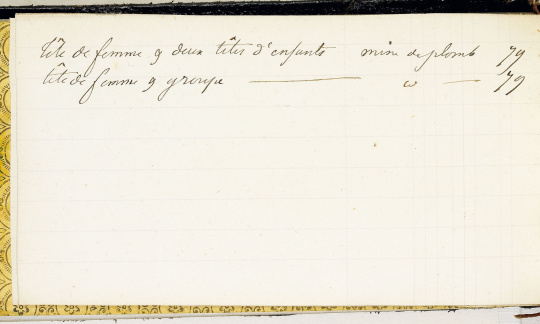 tête de femme & deux têtes d'enfants mine de plomb 79
tête de femme & groupe — ω — 79